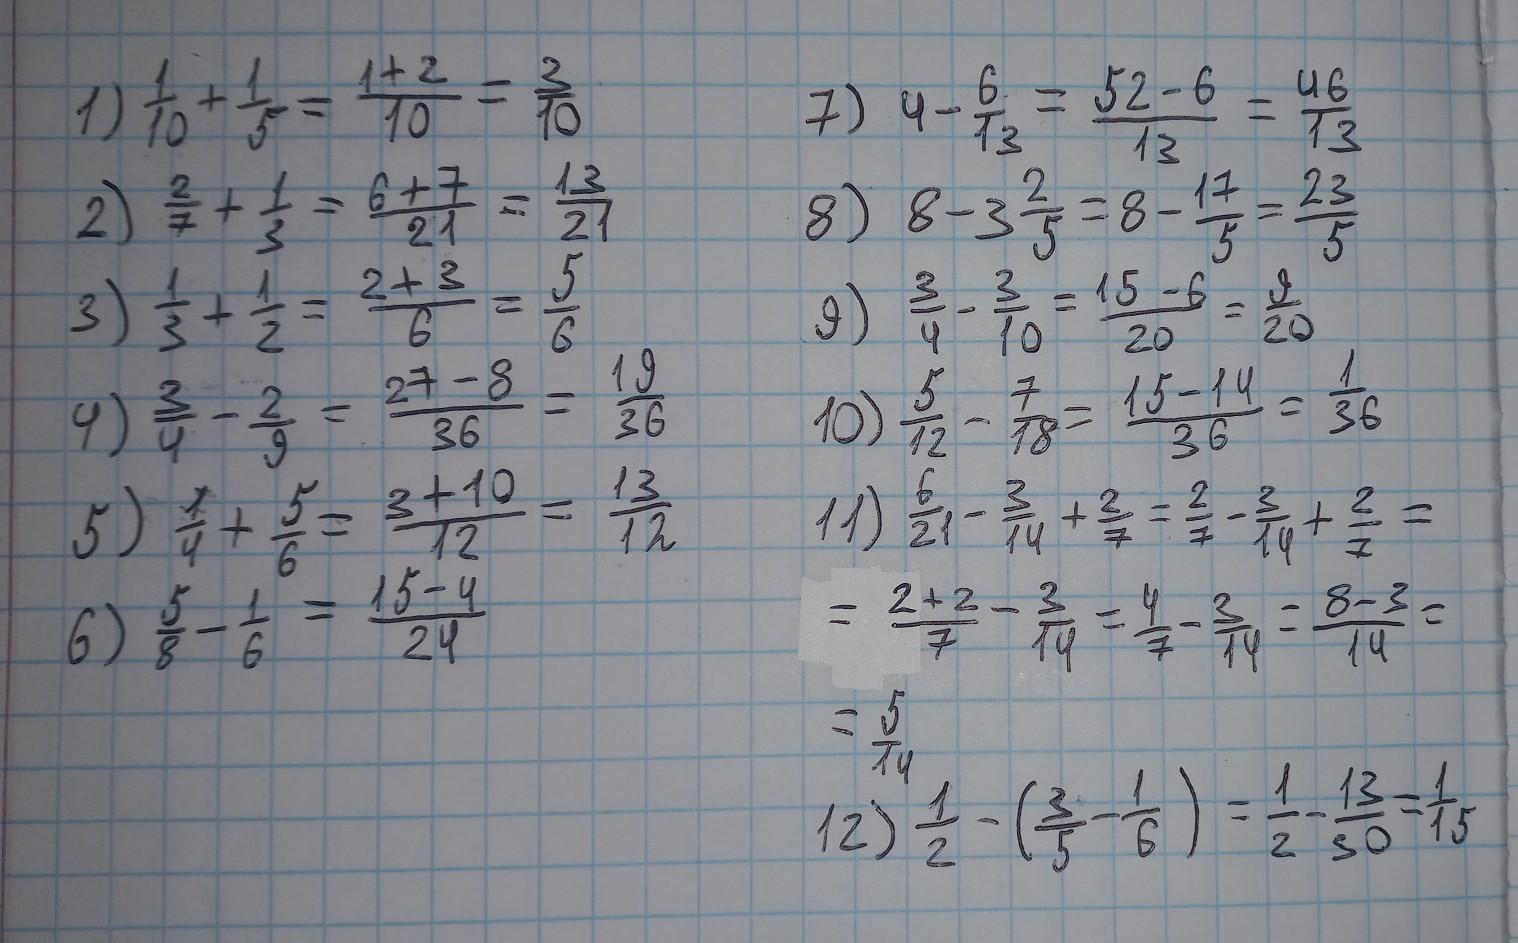 1) 1/10 + 1/5 = (1+2)/10 = 3/10
2) 2/7 + 1/3 = (6+7)/21 = 13/21
3) 1/3 + 1/2 = (2+3)/6 = 5/6
4) 3/4 - 2/9 = (27-8)/36 = 19/36
5) 1/4 + 5/6 = (3+10)/12 = 13/12
6) 5/8 - 1/6 = (15-4)/24
7) 4 - 6/13 = (52-6)/13 = 46/13
8) 8 - 3 2/5 = 8 - 17/5 = 23/5
9) 3/4 - 3/10 = (15-6)/20 = 9/20
10) 5/12 - 7/18 = (15-14)/36 = 1/36
11) 6/21 - 3/14 + 2/7 = 2/7 - 3/14 + 2/7 =
= (2+2)/7 - 3/14 = 4/7 - 3/14 = (8-3)/14 =
= 5/14
12) 1/2 - (3/5 - 1/6) = 1/2 - 13/30 = 1/15